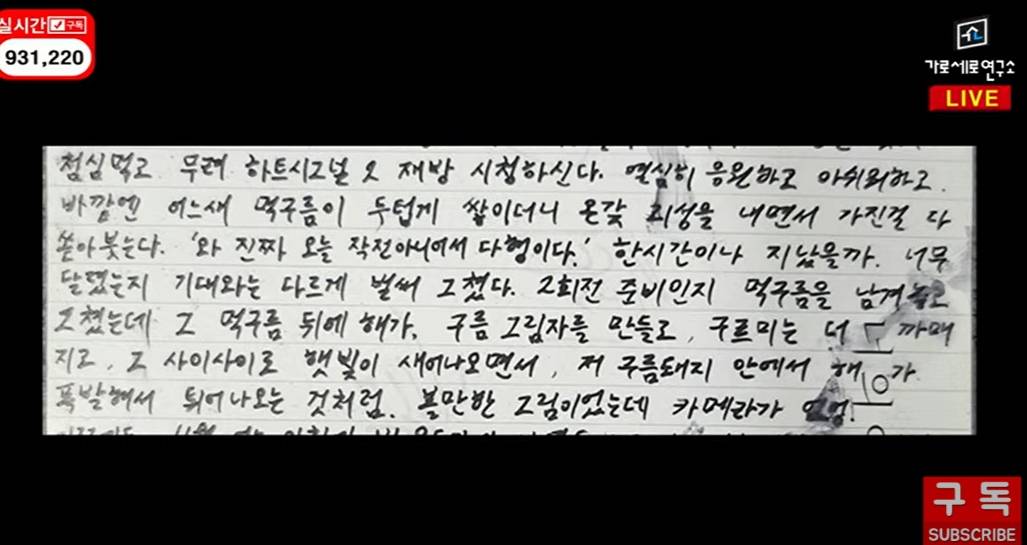 실시간 구독
931,220
가로세로연구소
LIVE
점심먹고 무려 하트시그널 오 재방 시청하신다. 열심히 응원하고 아쉬워하고.
바깥엔 어느새 먹구름이 두텁게 쌓이더니 온갖 괴성을 내면서 가진걸 다
쏟아붓는다. '와 진짜 오늘 작전아니에서 다형이다.' 한시간이나 지났을까. 너무
달렸는지 기대와는 다르게 벌써 그쳤다. 2회전 준비인지 먹구름을 남겨놓고
그쳤는데 그 먹구름 뒤에 해가, 구름 그림자를 만들고, 구르미는 더 까매
지고, 그 사이사이로 햇빛이 새어나오면서, 저 구름돼지 안에서 해가
폭발해서 튀어나오는 것처럼. 볼만한 그림이었는데 카메라가
구독
SUBSCRIBE